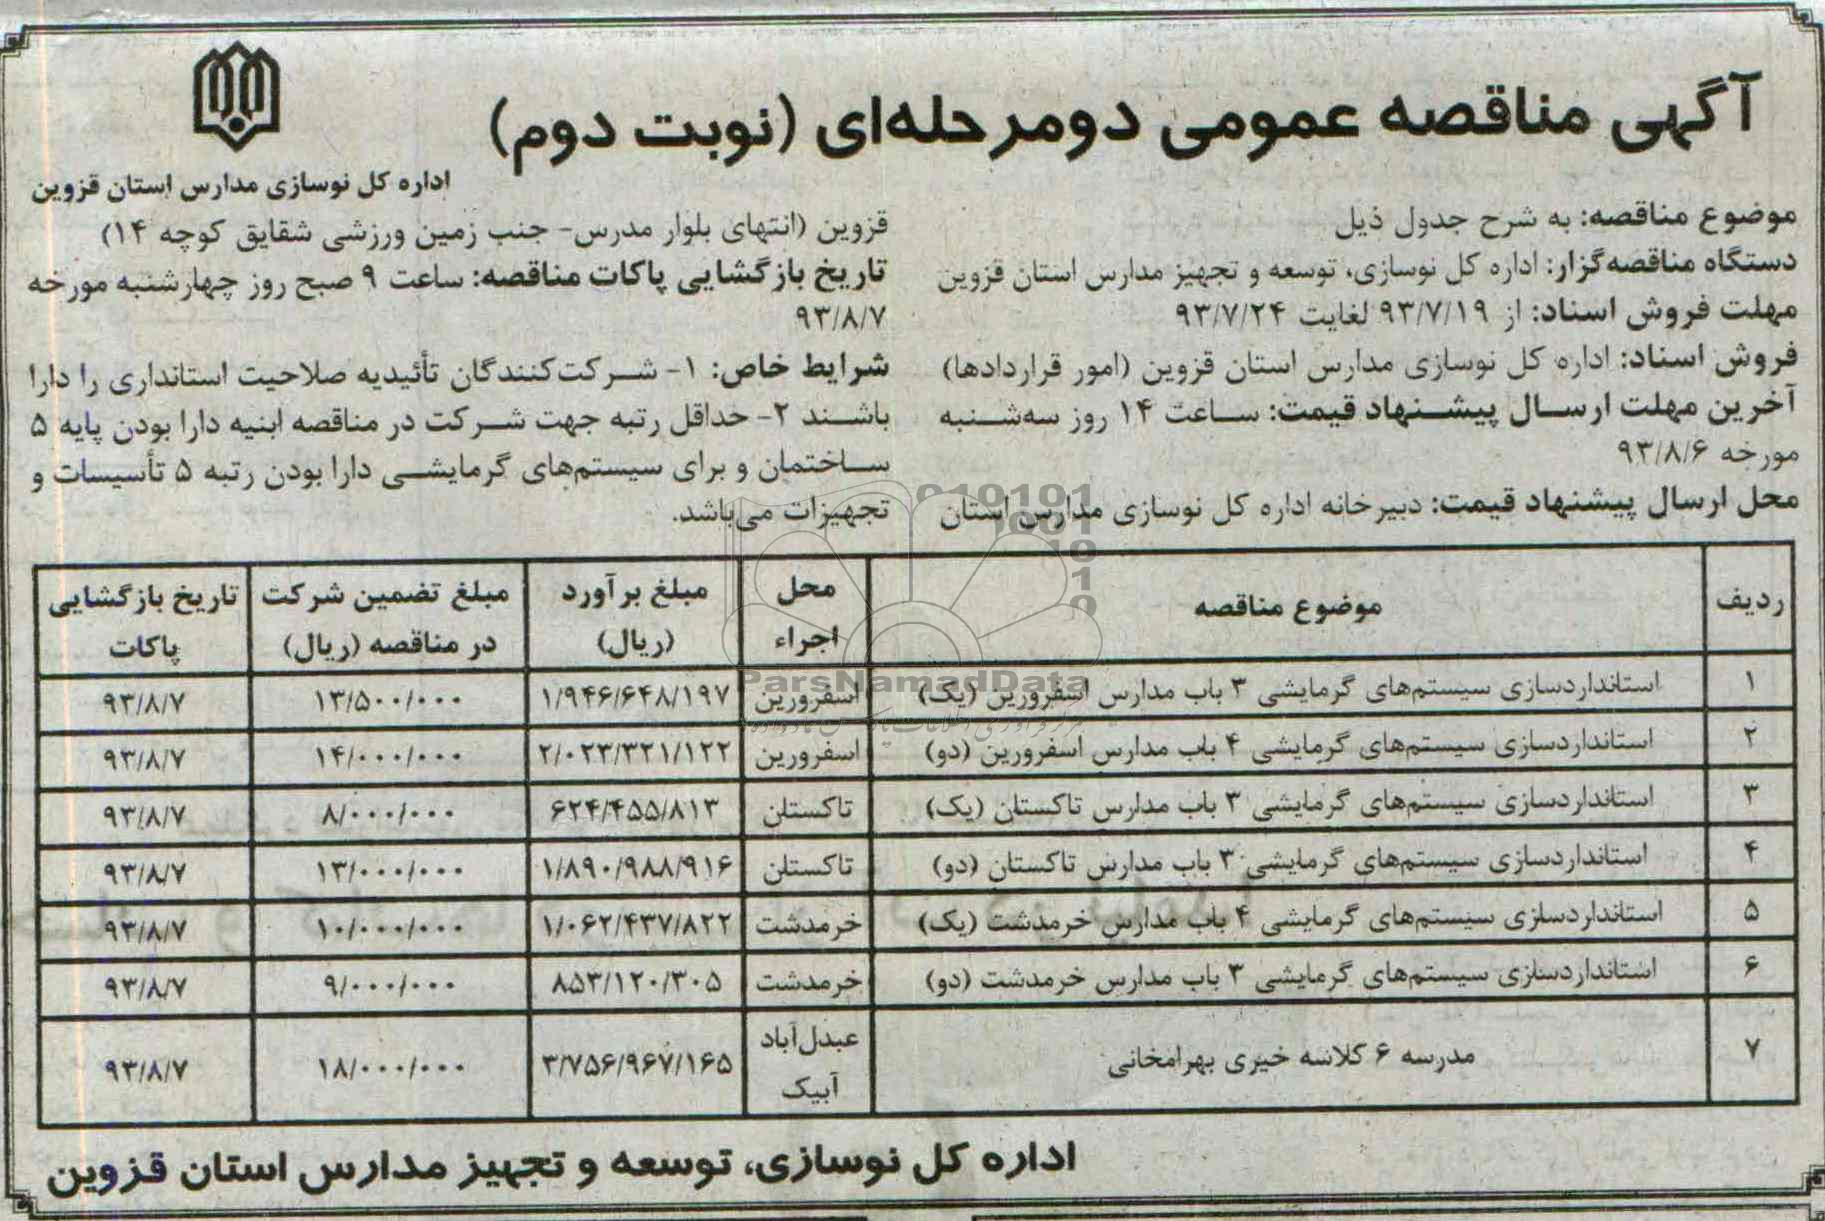 آگهی مناقصه عمومی دومرحله‌ای (نوبت دوم)
اداره کل نوسازی مدارس استان قزوین
موضوع مناقصه: به شرح جدول ذیل
دستگاه مناقصه‌گزار: اداره کل نوسازی، توسعه و تجهیز مدارس استان قزوین
مهلت فروش اسناد: از ۹۳/۷/۱۹ لغایت ۹۳/۷/۲۴
فروش اسناد: اداره کل نوسازی مدارس استان قزوین (امور قراردادها)
آخرین مهلت ارسال پیشنهاد قیمت: ساعت ۱۴ روز سه‌شنبه
مورخه ۹۳/۸/۶
محل ارسال پیشنهاد قیمت: دبیرخانه اداره کل نوسازی مدارس استان
قزوین (انتهای بلوار مدرس- جنب زمین ورزشی شقایق کوچه ۱۴)
تاریخ بازگشایی پاکات مناقصه: ساعت ۹ صبح روز چهارشنبه مورخه
۹۳/۸/۷
شرایط خاص: ۱- شرکت‌کنندگان تأئیدیه صلاحیت استانداری را دارا
باشند ۲- حداقل رتبه جهت شرکت در مناقصه ابنیه دارا بودن پایه ۵
ساختمان و برای سیستم‌های گرمایشی دارا بودن رتبه ۵ تأسیسات و
تجهیزات می‌باشد.
ردیف موضوع مناقصه محل اجراء مبلغ برآورد (ریال) مبلغ تضمین شرکت در مناقصه (ریال) تاریخ بازگشایی پاکات
۱ استانداردسازی سیستم‌های گرمایشی ۳ باب مدارس اسفرورین (یک) اسفرورین ۱/۹۴۶/۶۴۸/۱۹۷ ۱۳/۵۰۰/۰۰۰ ۹۳/۸/۷
۲ استانداردسازی سیستم‌های گرمایشی ۴ باب مدارس اسفرورین (دو) اسفرورین ۲/۰۲۳/۳۲۱/۱۲۲ ۱۴/۰۰۰/۰۰۰ ۹۳/۸/۷
۳ استانداردسازی سیستم‌های گرمایشی ۳ باب مدارس تاکستان (یک) تاکستان ۶۲۴/۴۵۵/۸۱۳ ۸/۰۰۰/۰۰۰ ۹۳/۸/۷
۴ استانداردسازی سیستم‌های گرمایشی ۳ باب مدارس تاکستان (دو) تاکستان ۱/۸۹۰/۹۸۸/۹۱۶ ۱۳/۰۰۰/۰۰۰ ۹۳/۸/۷
۵ استانداردسازی سیستم‌های گرمایشی ۴ باب مدارس خرمدشت (یک) خرمدشت ۱/۰۶۲/۴۳۷/۸۲۲ ۱۰/۰۰۰/۰۰۰ ۹۳/۸/۷
۶ استانداردسازی سیستم‌های گرمایشی ۳ باب مدارس خرمدشت (دو) خرمدشت ۸۵۳/۱۲۰/۳۰۵ ۹/۰۰۰/۰۰۰ ۹۳/۸/۷
۷ مدرسه ۶ کلاسه خیری بهرامخانی عبدل‌آباد آبیک ۳/۷۵۶/۹۶۷/۱۶۵ ۱۸/۰۰۰/۰۰۰ ۹۳/۸/۷
اداره کل نوسازی، توسعه و تجهیز مدارس استان قزوین
ParsNamadData